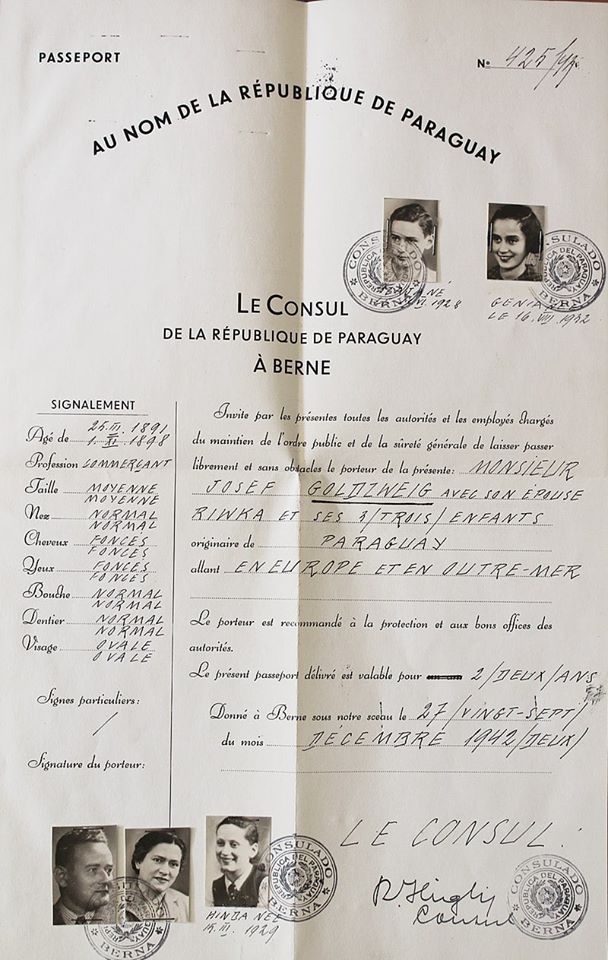 PASSEPORT
N° 425/
AU NOM DE LA RÉPUBLIQUE DE PARAGUAY
CONSULADO
REPUBLICA DEL PARAGUAY
BERNA
NÉ
1928
GENIA
LE 16. VIII. 1932
LE CONSUL
DE LA RÉPUBLIQUE DE PARAGUAY
À BERNE
SIGNALEMENT
Agé de 25. III. 1891
1. XI. 1898
Profession COMMERÇANT
Taille MOYENNE
MOYENNE
Nez NORMAL
NORMAL
Cheveux FONCÉS
FONCÉS
Yeux FONCÉS
FONCÉS
Bouche NORMAL
NORMAL
Dentier NORMAL
NORMAL
Visage OVALE
OVALE
Signes particuliers:
/
Signature du porteur:
Invite par les présentes toutes les autorités et les employés chargés
du maintien de l'ordre public et de la sûreté générale de laisser passer
librement et sans obstacles le porteur de la présente: MONSIEUR
JOSEF GOLDZWEIG AVEC SON ÉPOUSE
RIWKA ET SES 3/TROIS/ ENFANTS
originaire de PARAGUAY
allant EN EUROPE ET EN OUTRE-MER
Le porteur est recommandé à la protection et aux bons offices des
autorités.
Le présent passeport délivré est valable pour 2/DEUX/ANS
Donné à Berne sous notre sceau le 27/VINGT-SEPT/
du mois DÉCEMBRE 1942/DEUX/
LE CONSUL:
R. Hügly
Consul
CONSULADO
REPUBLICA DEL PARAGUAY
BERNA
HINDA NÉE
1929